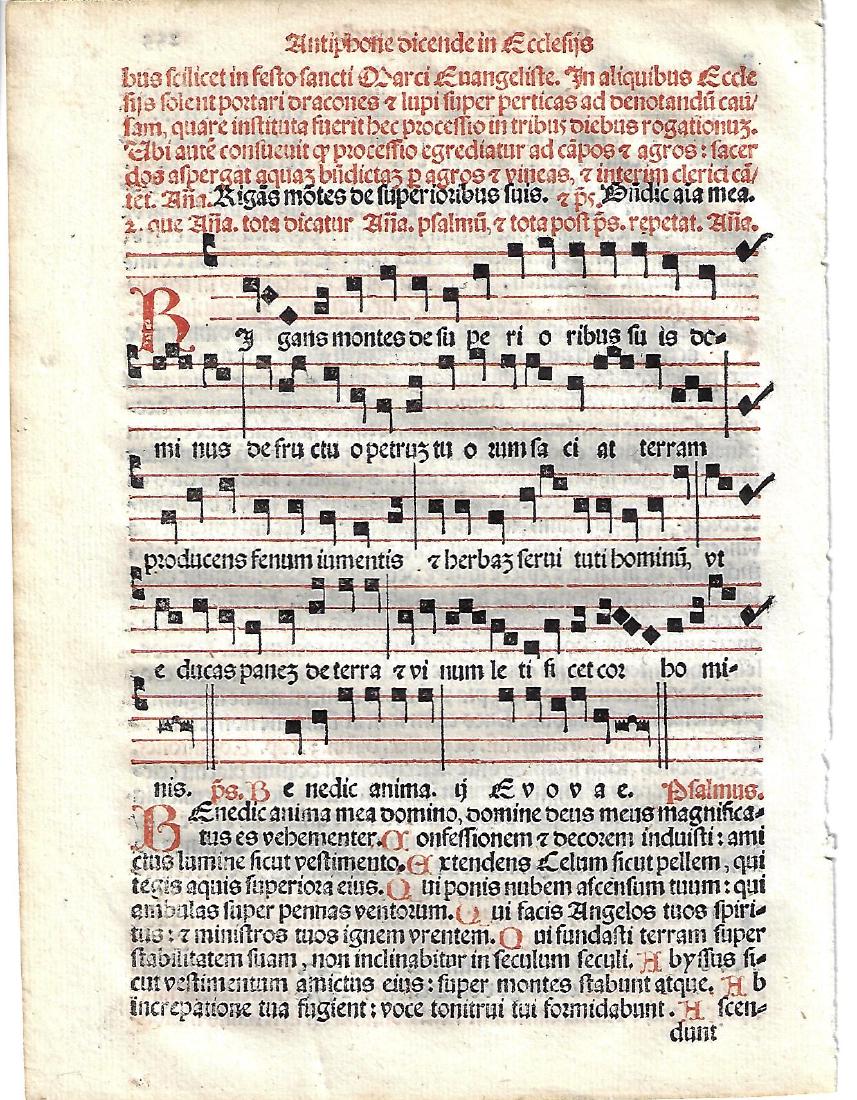 Antiphone dicende in Ecclesijs
bus scilicet in festo sancti Marci Euangeliste. In aliquibus Eccle
sijs solent portari dracones ⁊ lupi super perticas ad denotandū cau/
sam, quare instituta fuerit hec processio in tribus diebus rogationuꝫ.
Ubi autē consueuit ꝙ processio egrediatur ad cāpos ⁊ agros : sacer
dos aspergat aquaꝫ bn̄dictaꝫ ꝑ agros ⁊ vineas, ⁊ interim clerici cā/
tēt. Aña. Rigās mōtes de superioribus suis. ⁊ p̄s. Bn̄dic aīa mea.
2. que Aña. tota dicatur Aña. psalmū, ⁊ tota post p̄s. repetat. Aña.
R I gans montes de su pe ri o ribus su is do-
mi nus de fru ctu o petruꝫ tu o rum sa ci at terram
producens fenum iumentis ⁊ herbaꝫ serui tuti hominū, vt
e ducas paneꝫ de terra ⁊ vi num le ti fi cet cor ho mi-
nis. p̄s. B e nedic anima. ij E v o v a e. Psalmus.
BEnedic anima mea domino, domine deus meus magnifica-
tus es vehementer. C onfessionem ⁊ decorem induisti : ami
ctus lumine sicut vestimento. E xtendens Celum sicut pellem, qui
tegis aquis superiora eius. Q ui ponis nubem ascensum tuum : qui
ambulas super pennas ventorum. Q ui facis Angelos tuos spiri-
tus : ⁊ ministros tuos ignem vrentem. Q ui fundasti terram super
stabilitatem suam, non inclinabitur in seculum seculi. A byssus si-
cut vestimentum amictus eius : super montes stabunt atque. A b
increpatione tua fugient : voce tonitrui tui formidabunt. A scen-
dunt